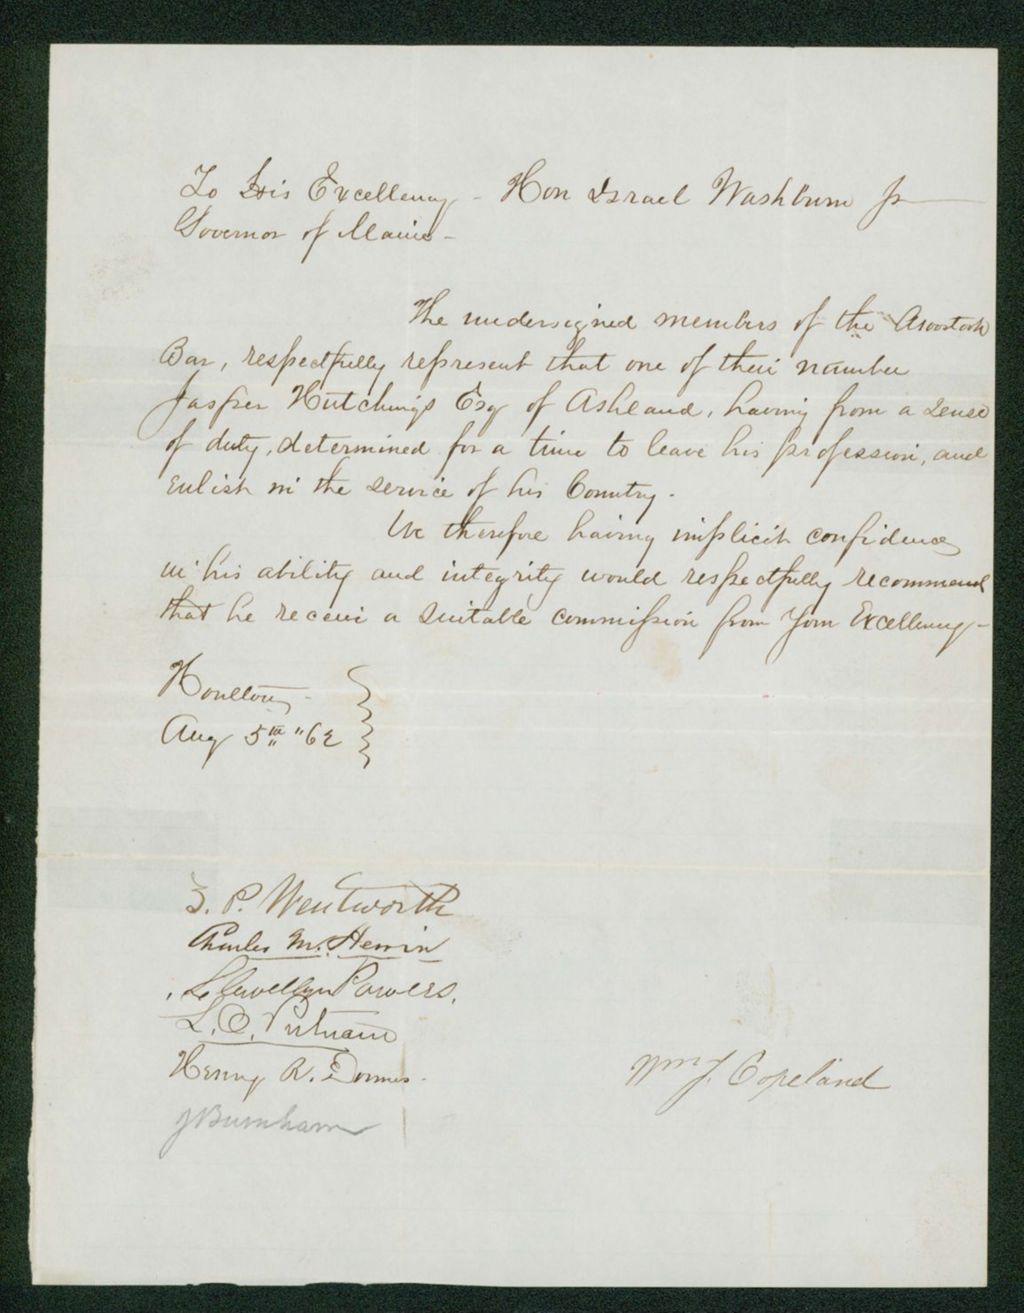 To His Excellency - Hon Israel Washburn Jr
Governor of Maine -
The undersigned members of the Aroostook
Bar, respectfully represent that one of their number
Jasper Hutchings Esq of Ashland, having from a sense
of duty, determined for a time to leave his profession, and
enlist in the service of his Country.
We therefore having implicit confidence
in his ability and integrity would respectfully recommend
that he receive a suitable commission from Your Excellency -
Houlton -
Aug 5th "62
Z. P. Wentworth
Charles M. Herrin
Llewellyn Powers.
L. O. Putnam
Henry R. Downes.
Wm J. Copeland
J Burnham